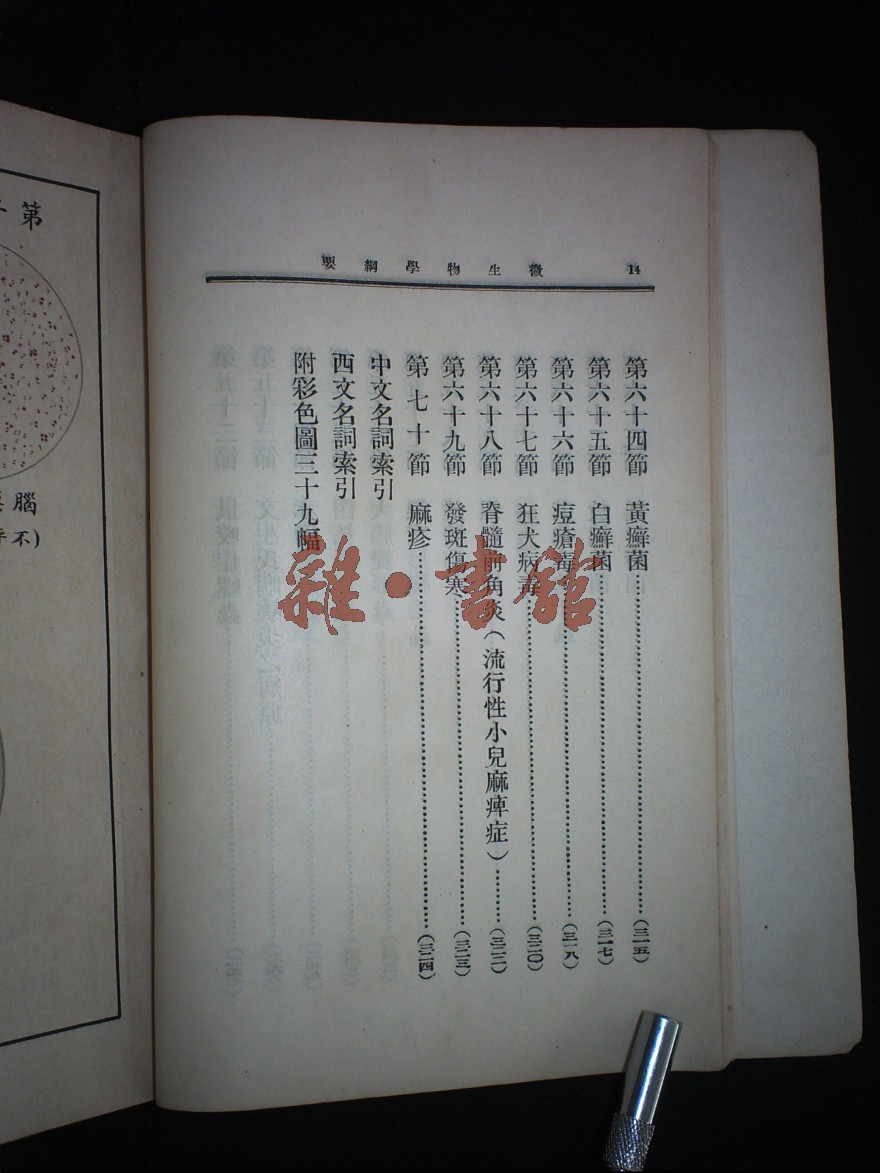 14 微生物學綱要
第六十四節 黃癬菌……(三一五)
第六十五節 白癬菌……(三一七)
第六十六節 痘瘡毒……(三一八)
第六十七節 狂犬病毒……(三二〇)
第六十八節 脊髓前角炎(流行性小兒麻痺症)……(三二二)
第六十九節 發斑傷寒……(三二三)
第七十節 麻疹……(三二四)
中文名詞索引
西文名詞索引
附彩色圖三十九幅
雜·書館
第
腦
不